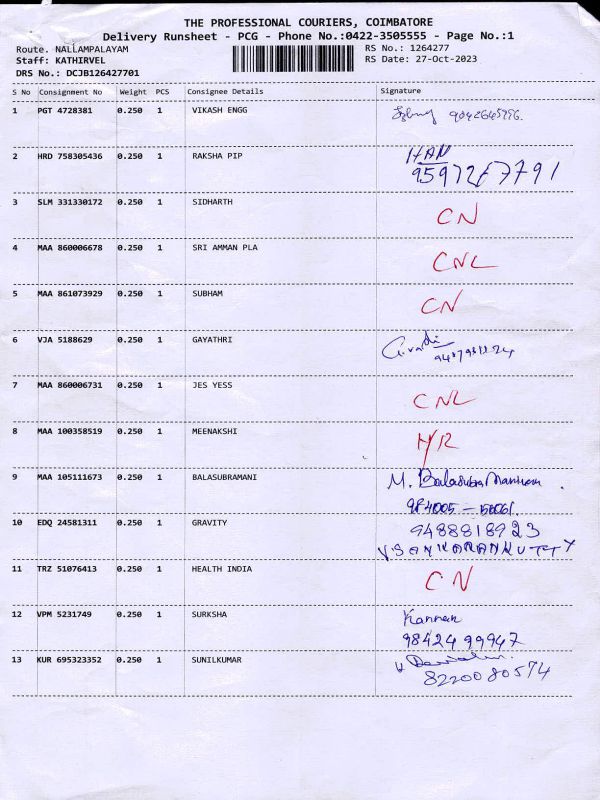 THE PROFESSIONAL COURIERS, COIMBATORE
Delivery Runsheet - PCG - Phone No.:0422-3505555 - Page No.:1
Route. NALLAMPALAYAM RS No.: 1264277
Staff: KATHIRVEL RS Date: 27-Oct-2023
DRS No.: DCJB126427701
S No Consignment No Weight PCS Consignee Details Signature
1 PGT 4728381 0.250 1 VIKASH ENGG
2 HRD 758305436 0.250 1 RAKSHA PIP
3 SLM 331330172 0.250 1 SIDHARTH CN
4 MAA 860006678 0.250 1 SRI AMMAN PLA CNL
5 MAA 861073929 0.250 1 SUBHAM CN
6 VJA 5188629 0.250 1 GAYATHRI
7 MAA 860006731 0.250 1 JES YESS CNL
8 MAA 100358519 0.250 1 MEENAKSHI H/R
9 MAA 105111673 0.250 1 BALASUBRAMANI M.
10 EDQ 24581311 0.250 1 GRAVITY 9488818923
VSANKARANKUTTY
11 TRZ 51076413 0.250 1 HEALTH INDIA CN
12 VPM 5231749 0.250 1 SURKSHA Kannan
98424 99947
13 KUR 695323352 0.250 1 SUNILKUMAR
8220080574